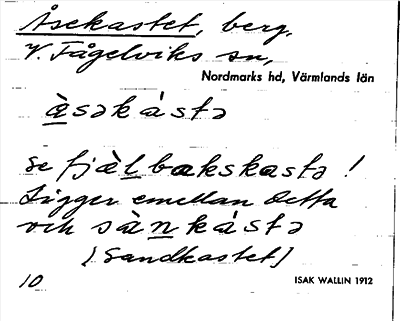 Åsekastet, berg,
V. Fågelviks sn,
Nordmarks hd, Värmlands län
a̱̒̀səkàstə
se fjæ̀ḻbakskastə !
Ligger emellan detta
och sàṉkástə
[Sandkastet]
10
ISAK WALLIN 1912